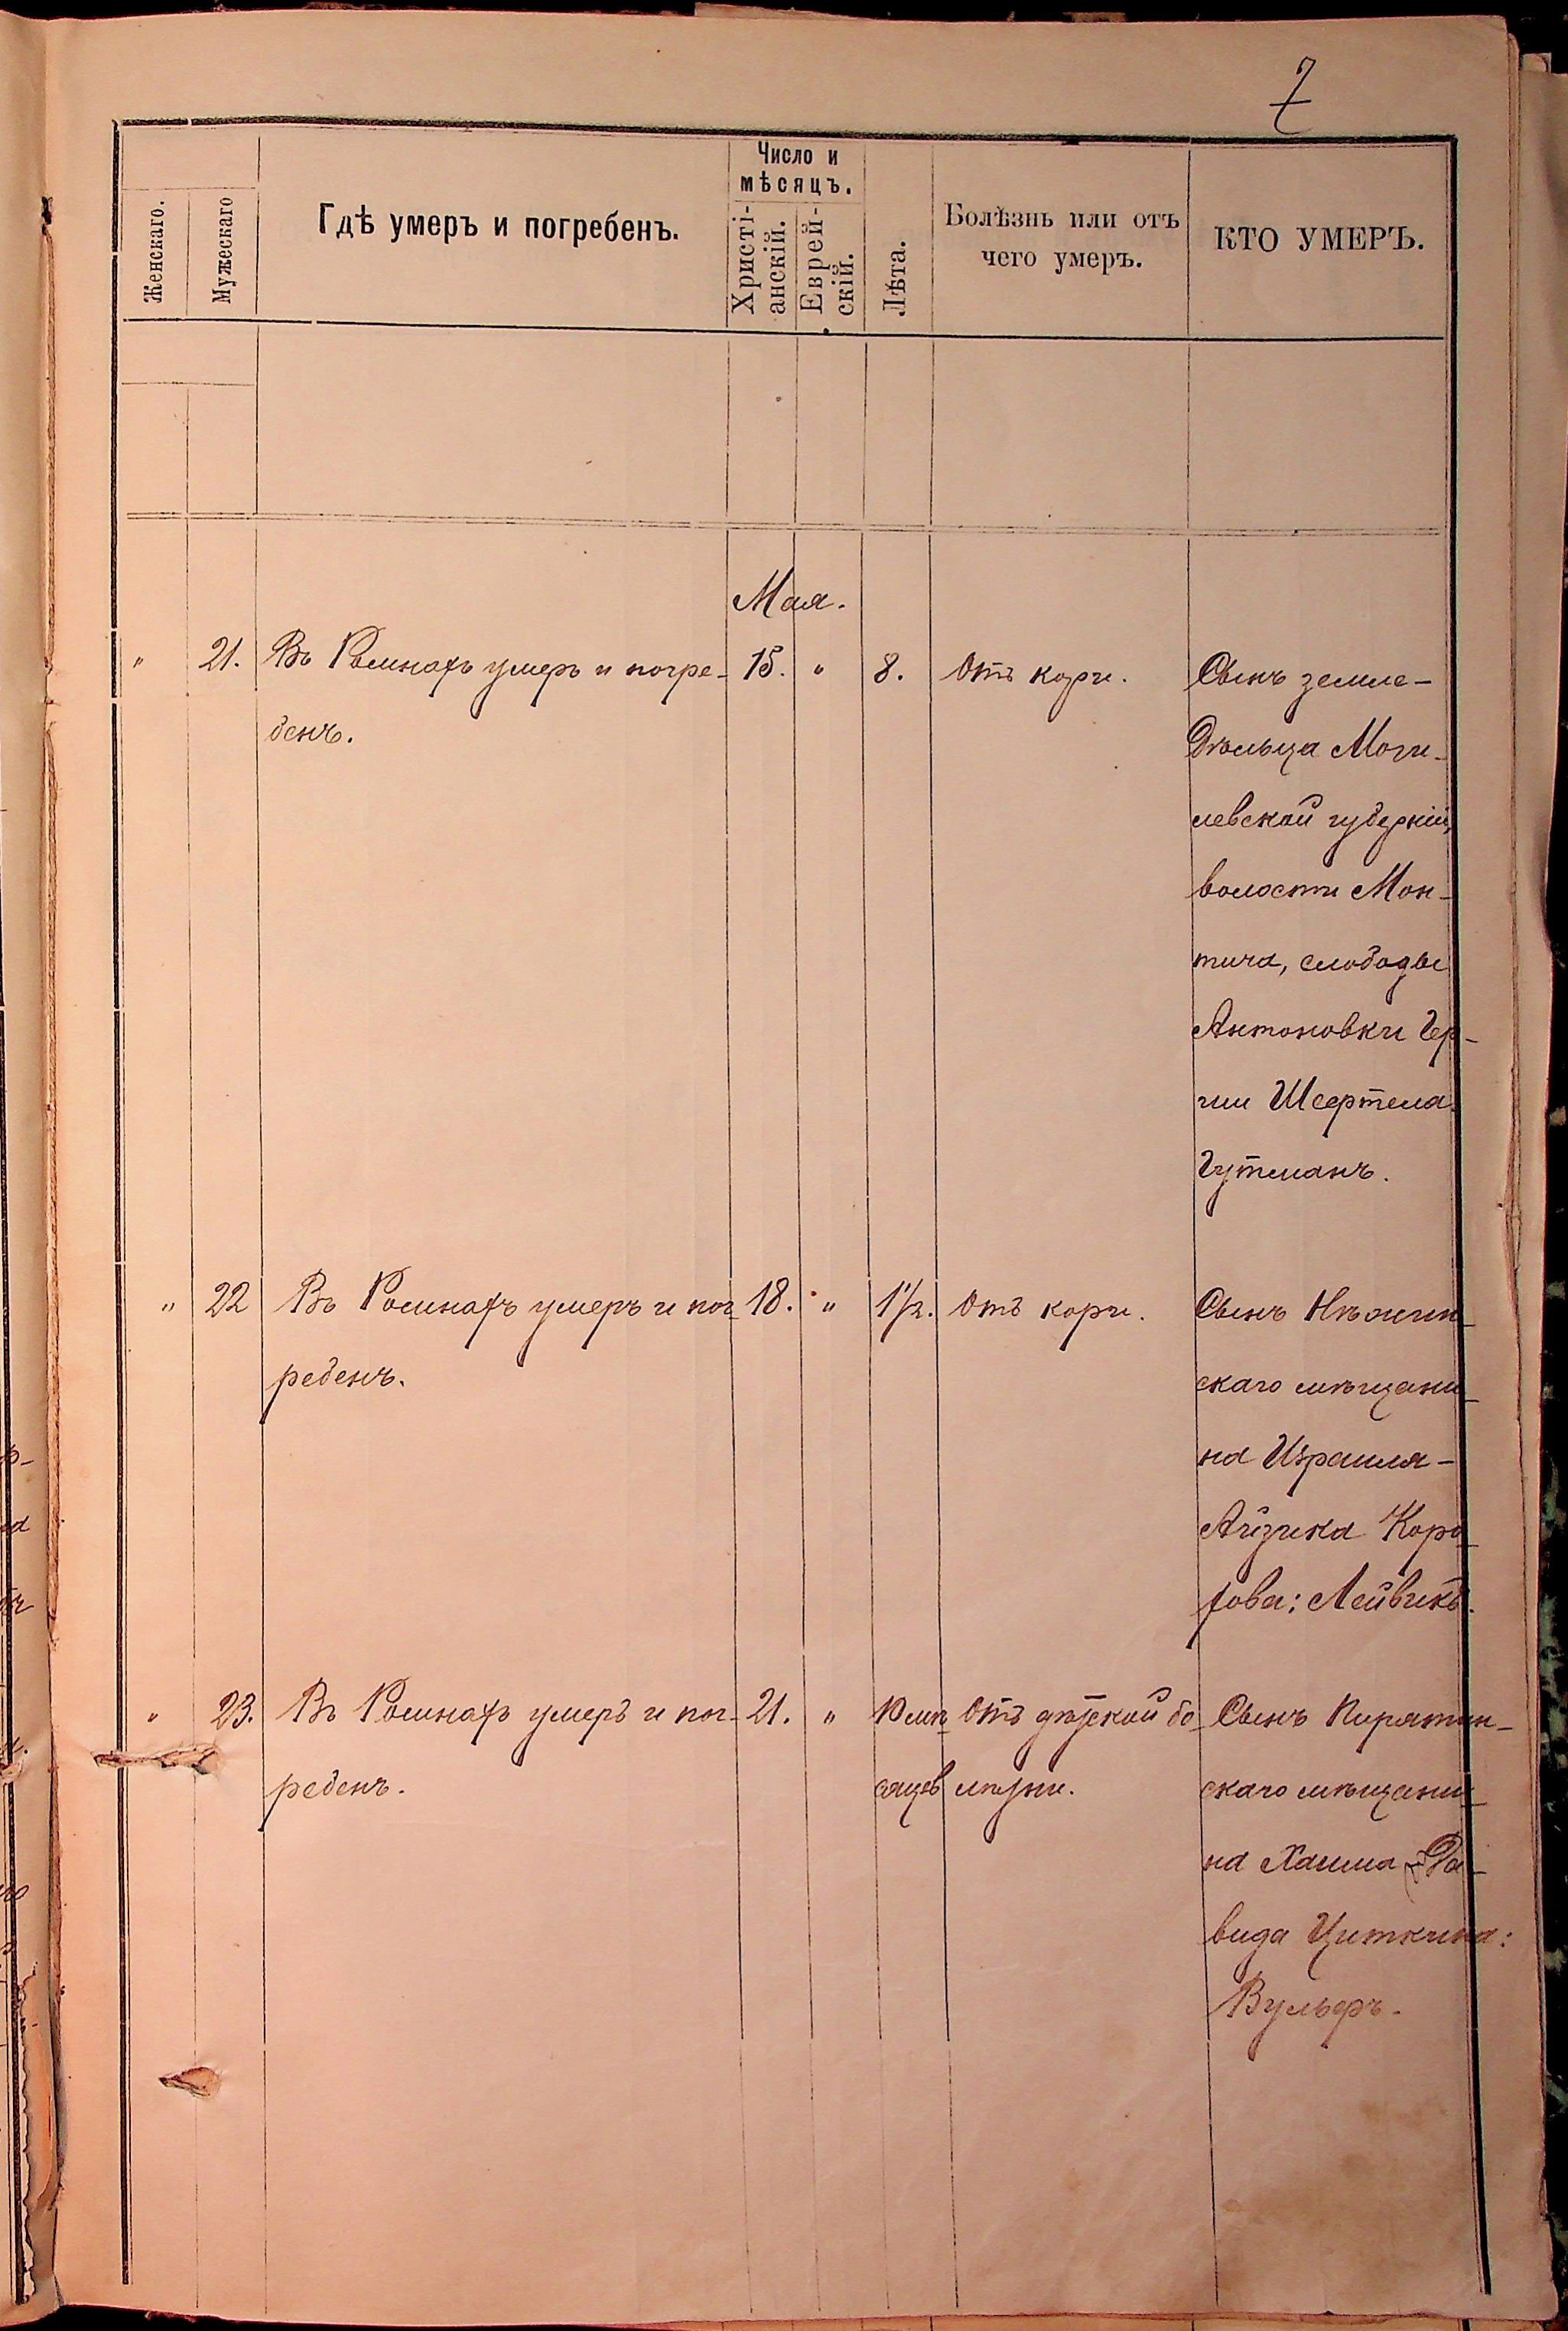 7
Женскаго.
Мужескаго
Гдѣ умеръ и погребенъ.
Число и
мѣсяцъ.
Христі-
анскій.
Еврей-
скій.
Лѣта.
Болѣзнь или отъ
чего умеръ.
КТО УМЕРЪ.
Мая.
" 21. Въ Ромнахъ умеръ и погре- 15. " 8. Отъ кори. Сынъ земле-
бенъ. дѣльца Моги-
левской губерніи,
волости Мон-
тича, слободы
Антоновки Гер-
Гутманъ.
" 22 Въ Ромнахъ умеръ и пог- 18. " 1 1/2. Отъ кори. Сынъ Нѣжин-
ребенъ. скаго мѣщани-
на Израиля-
Айзика Коро-
хова: Лейвикъ.
" 23. Въ Ромнахъ умеръ и пог- 21. " 10 мѣ- Отъ дѣтской бо- Сынъ Пирятин-
ребенъ. сяцевъ лѣзни. скаго мѣщани-
на Хаима Да-
вида Циткина:
Вульфъ.